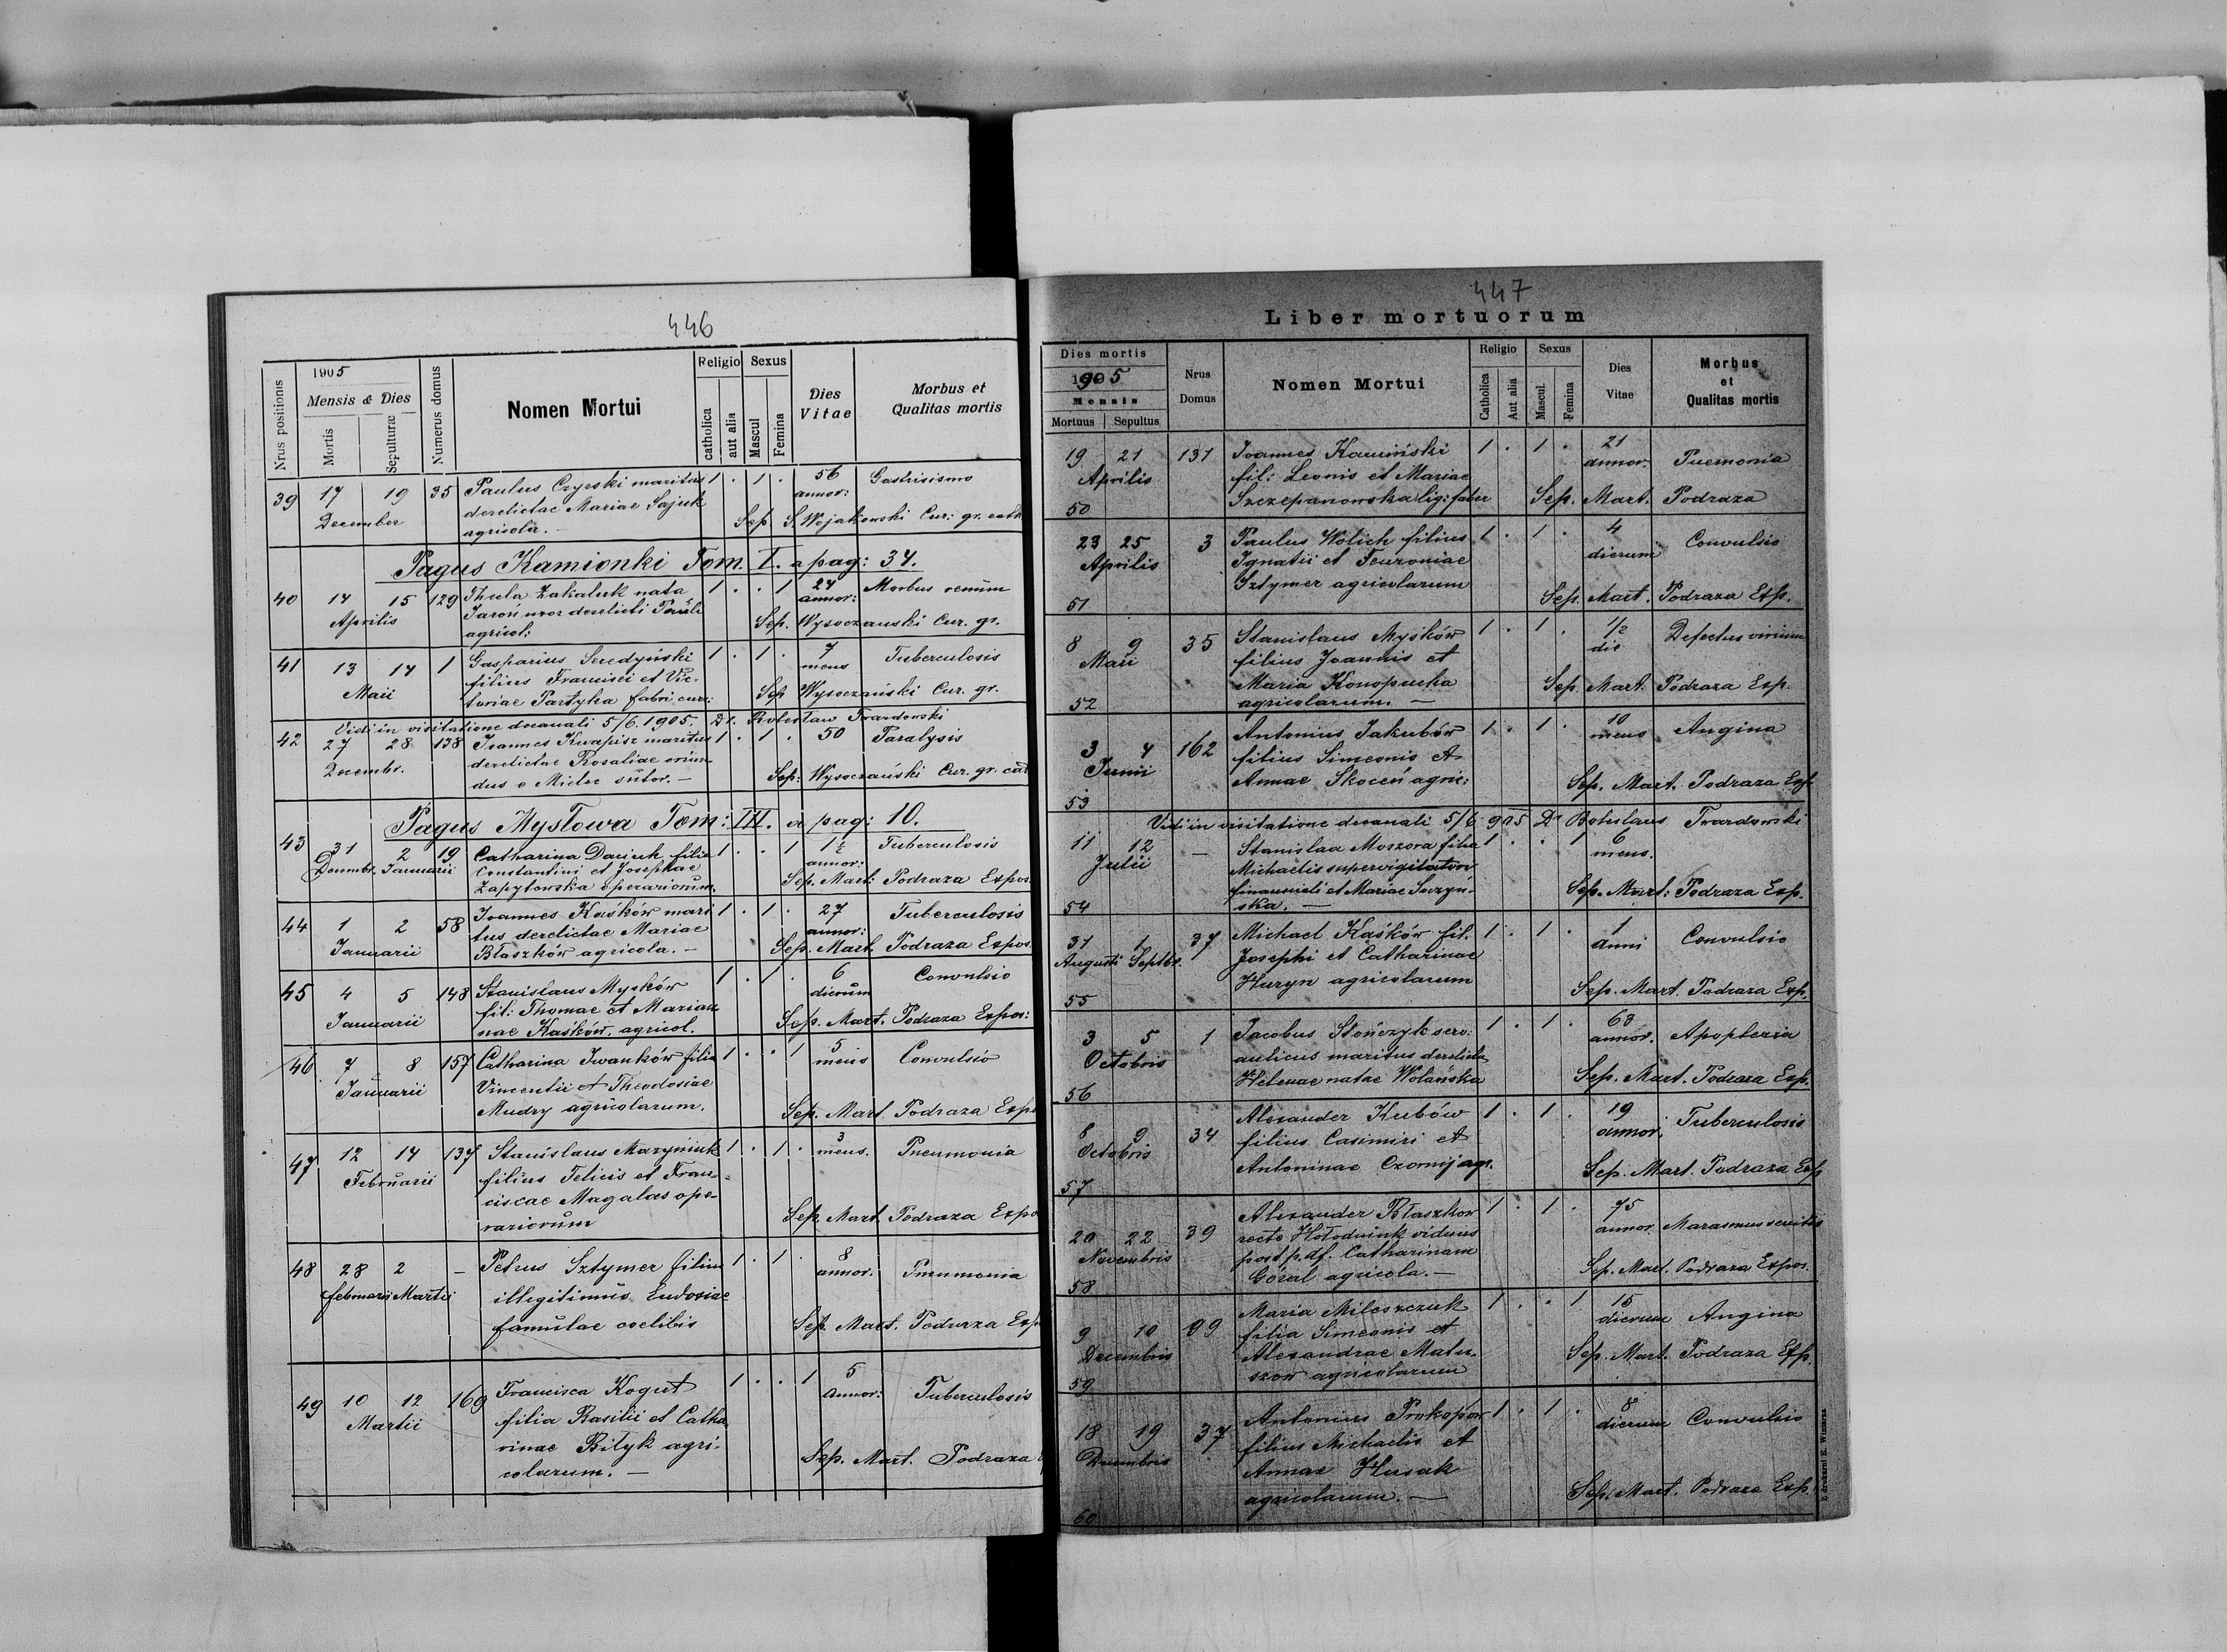 446
Nrus positionis
1905
Mensis & Dies
Mortis
Sepulturæ
Numerus domus
Nomen Mortui
Religio
catholica
aut alia
Sexus
Mascul
Femina
Dies Vitae
Morbus et
Qualitas mortis
39 17 19 35 Paulus Czyrski maritus 1 . 1 . 56 Gastrisismo
December derelictae Mariae Sajuk annor:
agricola. Sep S. Wojakowski Cur: gr. cath
Pagus Kamionki Tom. I. a pag: 34.
40 14 15 129 Thecla Zakaluk nata 1 . . 1 24 Morbus renum
Aprilis Jaroń uxor derelicti Pauli annor:
agricol: Sep. Wysoczanski Cur. gr.
41 13 14 1 Gasparius Seredyński 1 . 1 . 7 Tuberculosis
Maii filius Francisci et Vic- mens
toriae Partyka fabri curr: Sep Wysoczański Cur. gr.
Vidi in visitatione decanali 5/6. 1905. Dr. Bolesław Twardowski
42 27 28 138 Joannes Kwapisz maritus 1 . 1 . 50 Paralysis
Decembr. derelictae Rosaliae oriun-
dus e Mielec sutor. — Sep: Wysoczański Cur. gr. cat
Pagus Mysłowa Tom: III. a pag: 10.
43 31 2 19 Catharina Daciuk filia 1 . . 1 1½ Tuberculosis
Decembr. Januarii Constantini et Josephae annor:
Zapytowska operariorum. Sep. Mart: Podraza Expos.
44 1 2 58 Joannes Kaśków mari 1 . 1 . 27 Tuberculosis
Januarii tus derelictae Mariae annor:
Błaszków agricola. — Sep. Mart. Podraza Expos.
45 4 5 148 Stanislaus Myśków 1 . 1 . 6 Convulsio
Januarii fil: Thomae et Marian dierum
nae Kaśków. agricol. Sep. Mart. Podraza Expos:
46 7 8 157 Catharina Iwanków filia 1 . . 1 5 Convulsio
Januarii Vincentii et Theodosiae mens
Mudry agricolarum. Sep. Mart. Podraza Expo
47 12 14 137 Stanislaus Maryniuk 1 . 1 . 3 Pneumonia
Februarii filius Felicis et Fran- mens.
ciscae Magalas ope-
rariorum Sep. Mart. Podraza Expo
48 28 2 — Petrus Sztymer filius 1 . 1 . 8 Pneumonia
februarii Martii illegitimus Eudosiae annor.
famulae coelibis Sep. Mart. Podraza Exp
49 10 12 169 Francisca Kogut 1 . . 1 5 Tuberculosis
Martii filia Basilii et Catha annor:
rinae Bityk agri-
colarum. — Sep. Mart. Podraza
447
Liber mortuorum
Dies mortis
1905
Mensis
Mortuus
Sepultus
Nrus
Domus
Nomen Mortui
Religio
Catholica
Aut alia
Sexus
Mascul.
Femina
Dies
Vitae
Morbus
et
Qualitas mortis
19 21 131 Joannes Kamiński 1 . 1 . 21 Pnemonia
Aprilis fil: Leonis et Mariae annor.
50 Szczepanowska lig: faber Sep. Mart. Podraza
23 25 3 Paulus Wolich filius 1 . 1 . 4 Convulsio
Aprilis Ignatii et Feuroniae dierum
51 Sztymer agricolarum Sep. Mart. Podraza Exp.
8 9 35 Stanislaus Myśków 1 . 1 . 1/2 Defectus virium
Maii filius Joannis et die
Maria Konopucka Sep. Mart. Podraza Exp.
52 agricolarum. —
3 4 162 Antonius Jakubów 1 . 1 . 10 Angina
Junii filius Simeonis et mens
53 Annae Skoceń agric: Sep. Mart. Podraza Exp.
Vidi in visitatione decanali 5/6 905 Dr Boleslaus Twardowski
11 12 — Stanislaa Moszora filia 1 . . 1 6
Julii Michaelis supervigilatoris mens.
financiali et Mariae Soczyń- Sep. Mart: Podraza Exp.
54 ska. —
31 1 37 Michael Kaśków fil. 1 . 1 . 1 Convulsio
Augusti Septbr. Josephi et Catharinae Anni
55 Huryn agricolarum Sep. Mart. Podraza Exp.
3 5 1 Jacobus Stończyk serv: 1 . 1 . 63 Apoplexia
Octobris aulicus maritus derelictae annor.
56 Helenae natae Wolańska Sep. Mart. Podraza Exp.
8 9 34 Alexander Kubów 1 . 1 . 19 Tuberculosis
Octobris filius Casimiri et annor.
57 Antoninae Czornij agr. Sep. Mart. Podraza Exp
20 22 39 Alexander Błaszkow 1 . 1 . 75 Marasmus senilis
Novembris recte Hołodniuk viduus annor.
post p. df. Catharinam Sep. Mart. Podraza Expos.
58 Góral agricola. —
9 10 99 Maria Mileszczuk 1 . . 1 15 Angina
Decembris filia Simeonis et dierum
Alexandrae Matu- Sep. Mart. Podraza Exp.
59 szow agricolarum
18 19 37 Antonius Prokopow 1 . 1 . 8 Convulsio
Decembris filius Michaelis et dierum
Annae Husak
60 agricolarum. — Sep. Mart. Podraza Exp.
Z drukarni E. Winiarza